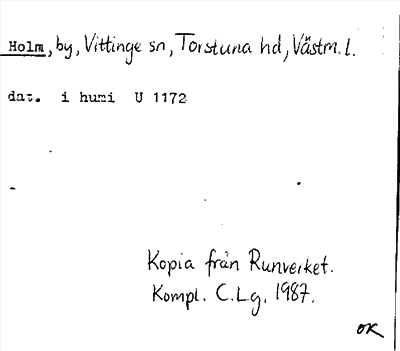 Holm, by, Vittinge sn, Torstuna hd, Västm. l.
dat. i humi U 1172
Kopia från Runverket.
Kompl. C.Lg. 1987.
OK